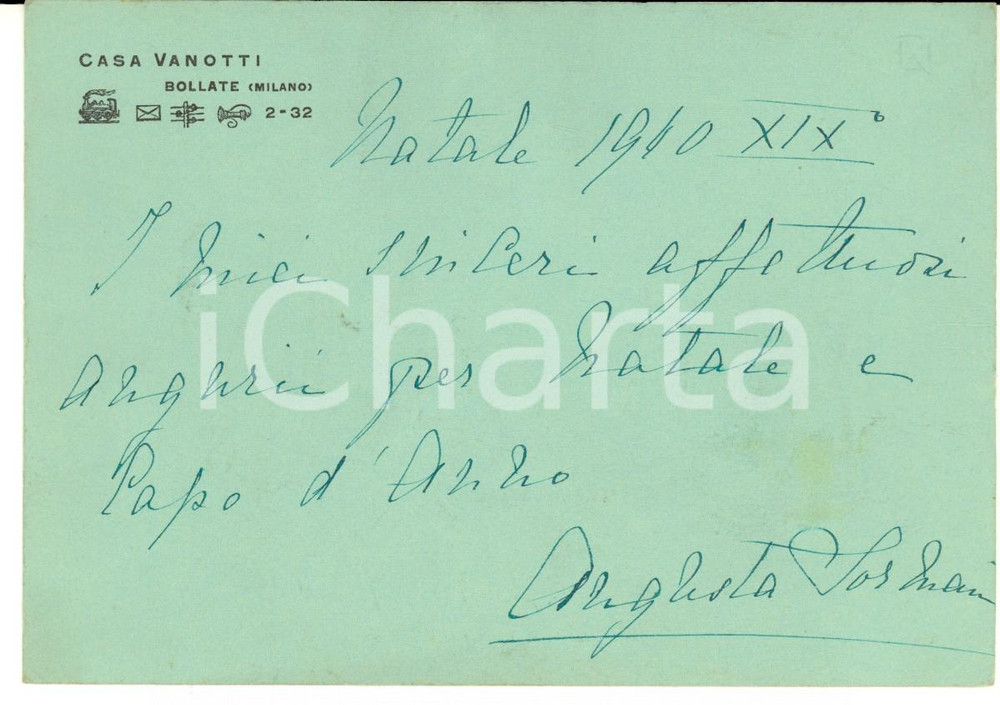 CASA VANOTTI
BOLLATE (MILANO)
2-32
Natale 1940 XIX°
I miei sinceri affettuosi
auguri per Natale e
Capo d'Anno
Augusta Sormani
iCharta